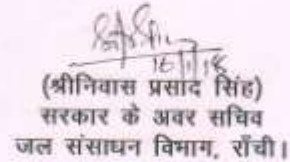 16/1/18
(श्रीनिवास प्रसाद सिंह)
सरकार के अवर सचिव
जल संसाधन विभाग, राँची।